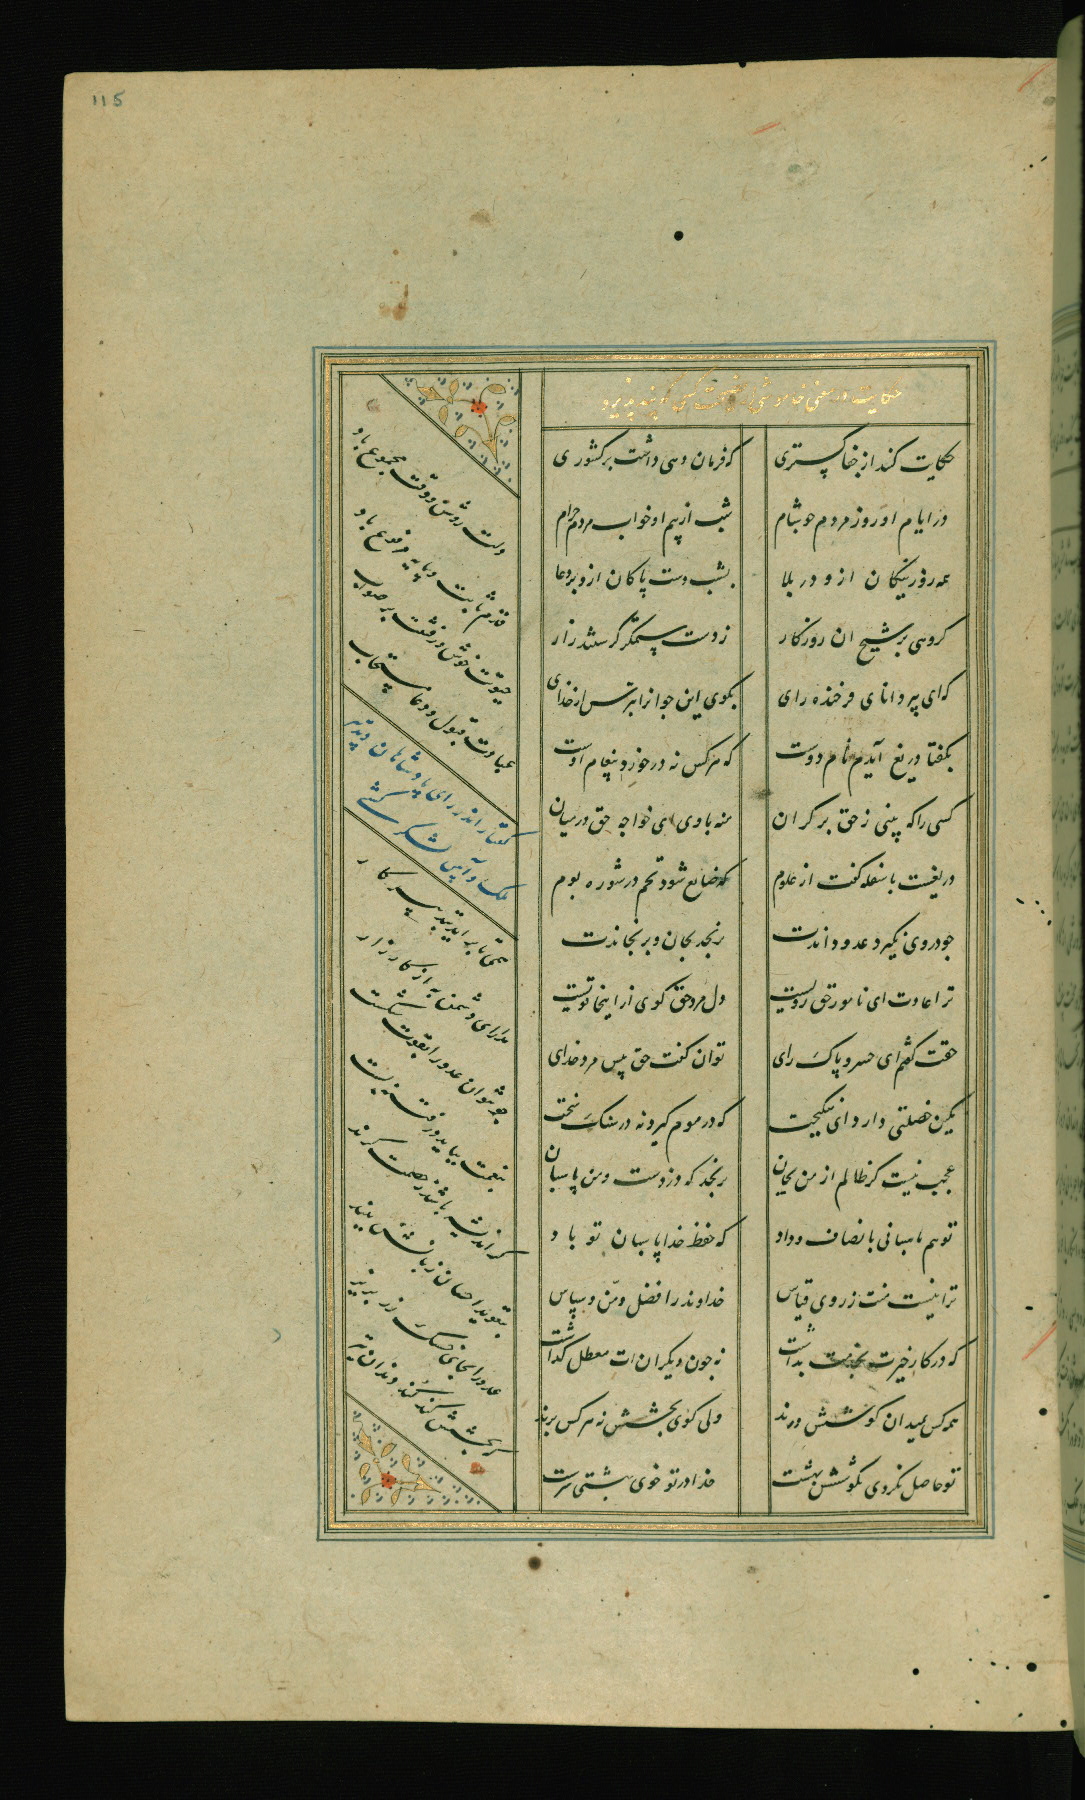 115
حکایت در معنی خاموشی از نصیحت کسی که پند نپذیرد
حکایت کنند از جفاگستری
که فرمان دهی داشت بر کشوری
در ایام او روز مردم چو شام
شب از بیم او خواب مردم حرام
همه روز نیکان ازو در بلا
بشب دست پاکان ازو بر دعا
گروهی بر شیخ ان روزگار
ز دست ستمگر گرستند زار
که ای پیر دانای فرخنده رای
بگوی این جوانرا بترس از خدای
بگفتا دریغ آیدم نام دوست
که هرکس نه در خورد پیغام اوست
کسی را که بینی ز حق بر کران
منه با وی ای خواجه حق در میان
دریغست با سفله گفت از علوم
که ضایع شود تخم در شوره بوم
چو در وی نگیرد عدو داندت
برنجد بجان و برنجاندت
ترا عادت ای نامور حق رویست
دل مرد حق گوی از اینجا قویست
حقت گفتم ای خسرو پاک رای
توان گفت حق پیش مرد خدای
نگین خصلتی دارد ای نیکبخت
که در موم گیرد نه در سنگ سخت
عجب نیست گر ظالم از من بجان
برنجد که دزدست و من پاسبان
تو هم پاسبانی بانصاف و داد
که حفظ خدا پاسبان تو باد
ترا نیست منت ز روی قیاس
خداوند را فضل و من و سپاس
که در کار خیرت بخدمت بداشت
نه چون دیگران ات معطل گذاشت
همه کس بمیدان کوشش درند
ولی گوی بخشش نه هرکس برند
تو حاصل نکردی بکوشش بهشت
خدا در تو خوی بهشتی سرشت
دلت روشن و وقت مجموع باد
قدم ثابت و پایه مرفوع باد
حیوتت خوش و رفتنت بر صواب
عبادت قبول و دعا مستجاب
گفتار اندر رای پادشاهان و تدبیر
ملک و آیین لشکر کشی
همی تا برآید بتدبیر کار
مدارای دشمن به از کارزار
چو نتوان عدو را بقوت شکست
بنعمت بباید در فتنه بست
گر اندیشه باشد ز خصمت گزند
بتعوید احسان زبانش ببند
عدو را بجای خسک زر بریز
که بخشش کند کند دندان تیز